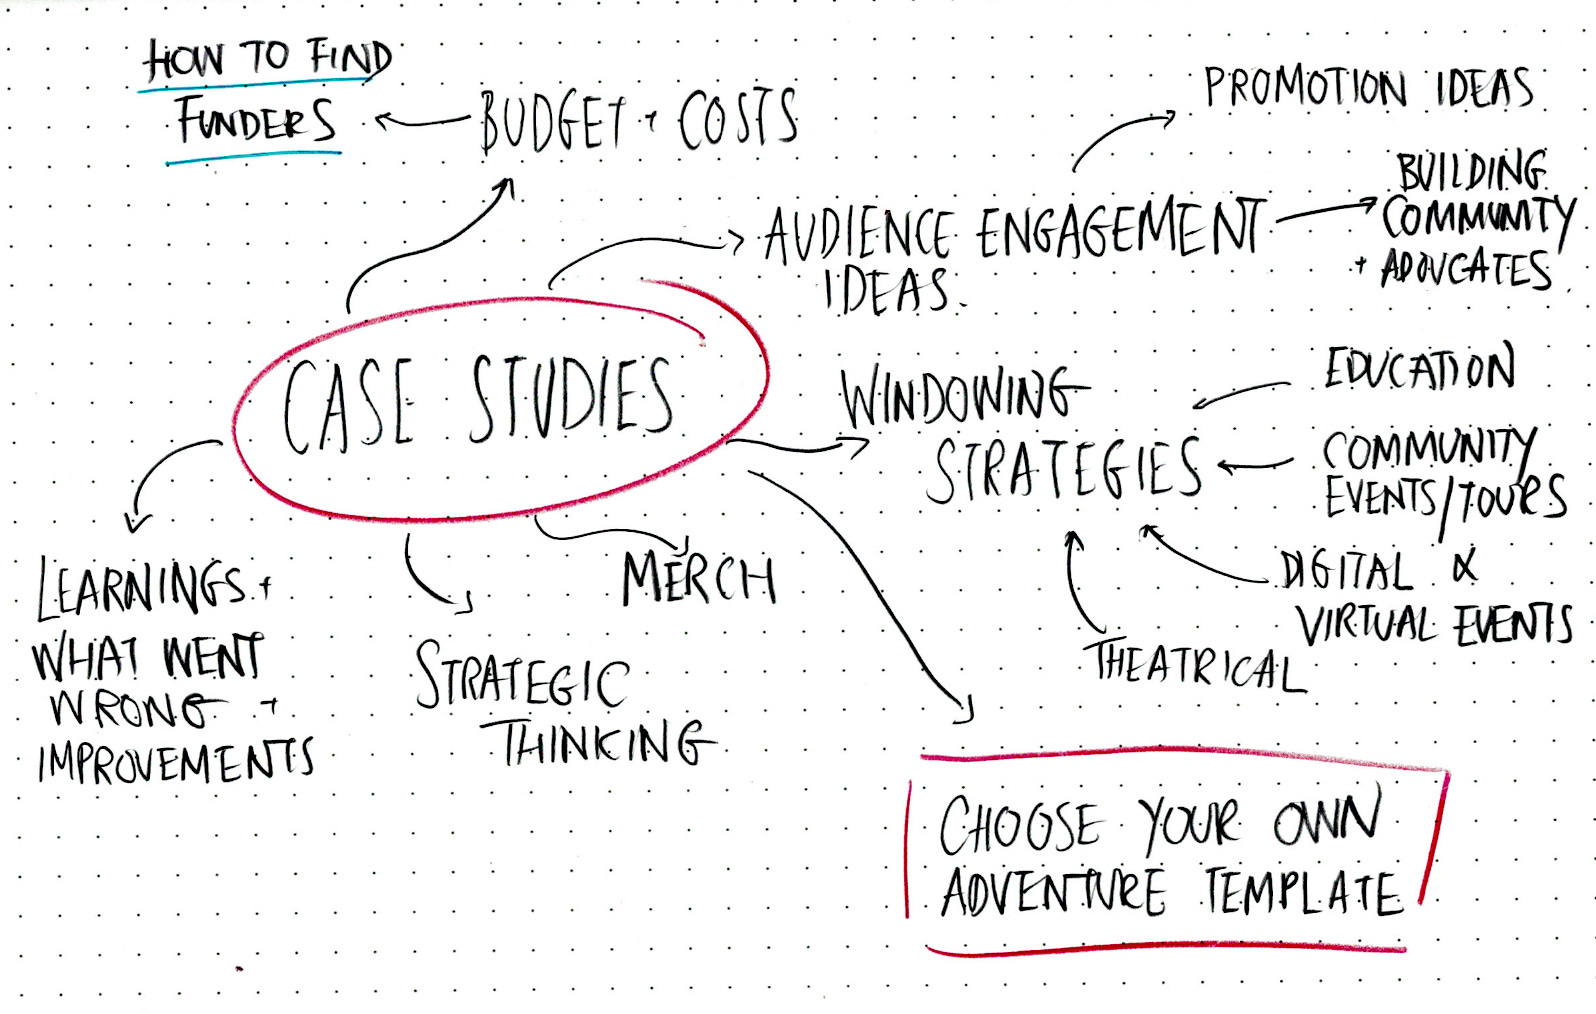 HOW TO FIND
FUNDERS
BUDGET + COSTS
PROMOTION IDEAS
AUDIENCE ENGAGEMENT
IDEAS.
BUILDING
COMMUNITY
+ ADOVCATES
CASE STUDIES
WINDOWING
STRATEGIES
EDUCATION
COMMUNITY
EVENTS/TOURS
DIGITAL &
VIRTUAL EVENTS
THEATRICAL
MERCH
LEARNINGS +
WHAT WENT
WRONG +
IMPROVEMENTS
STRATEGIC
THINKING
CHOOSE YOUR OWN
ADVENTURE TEMPLATE